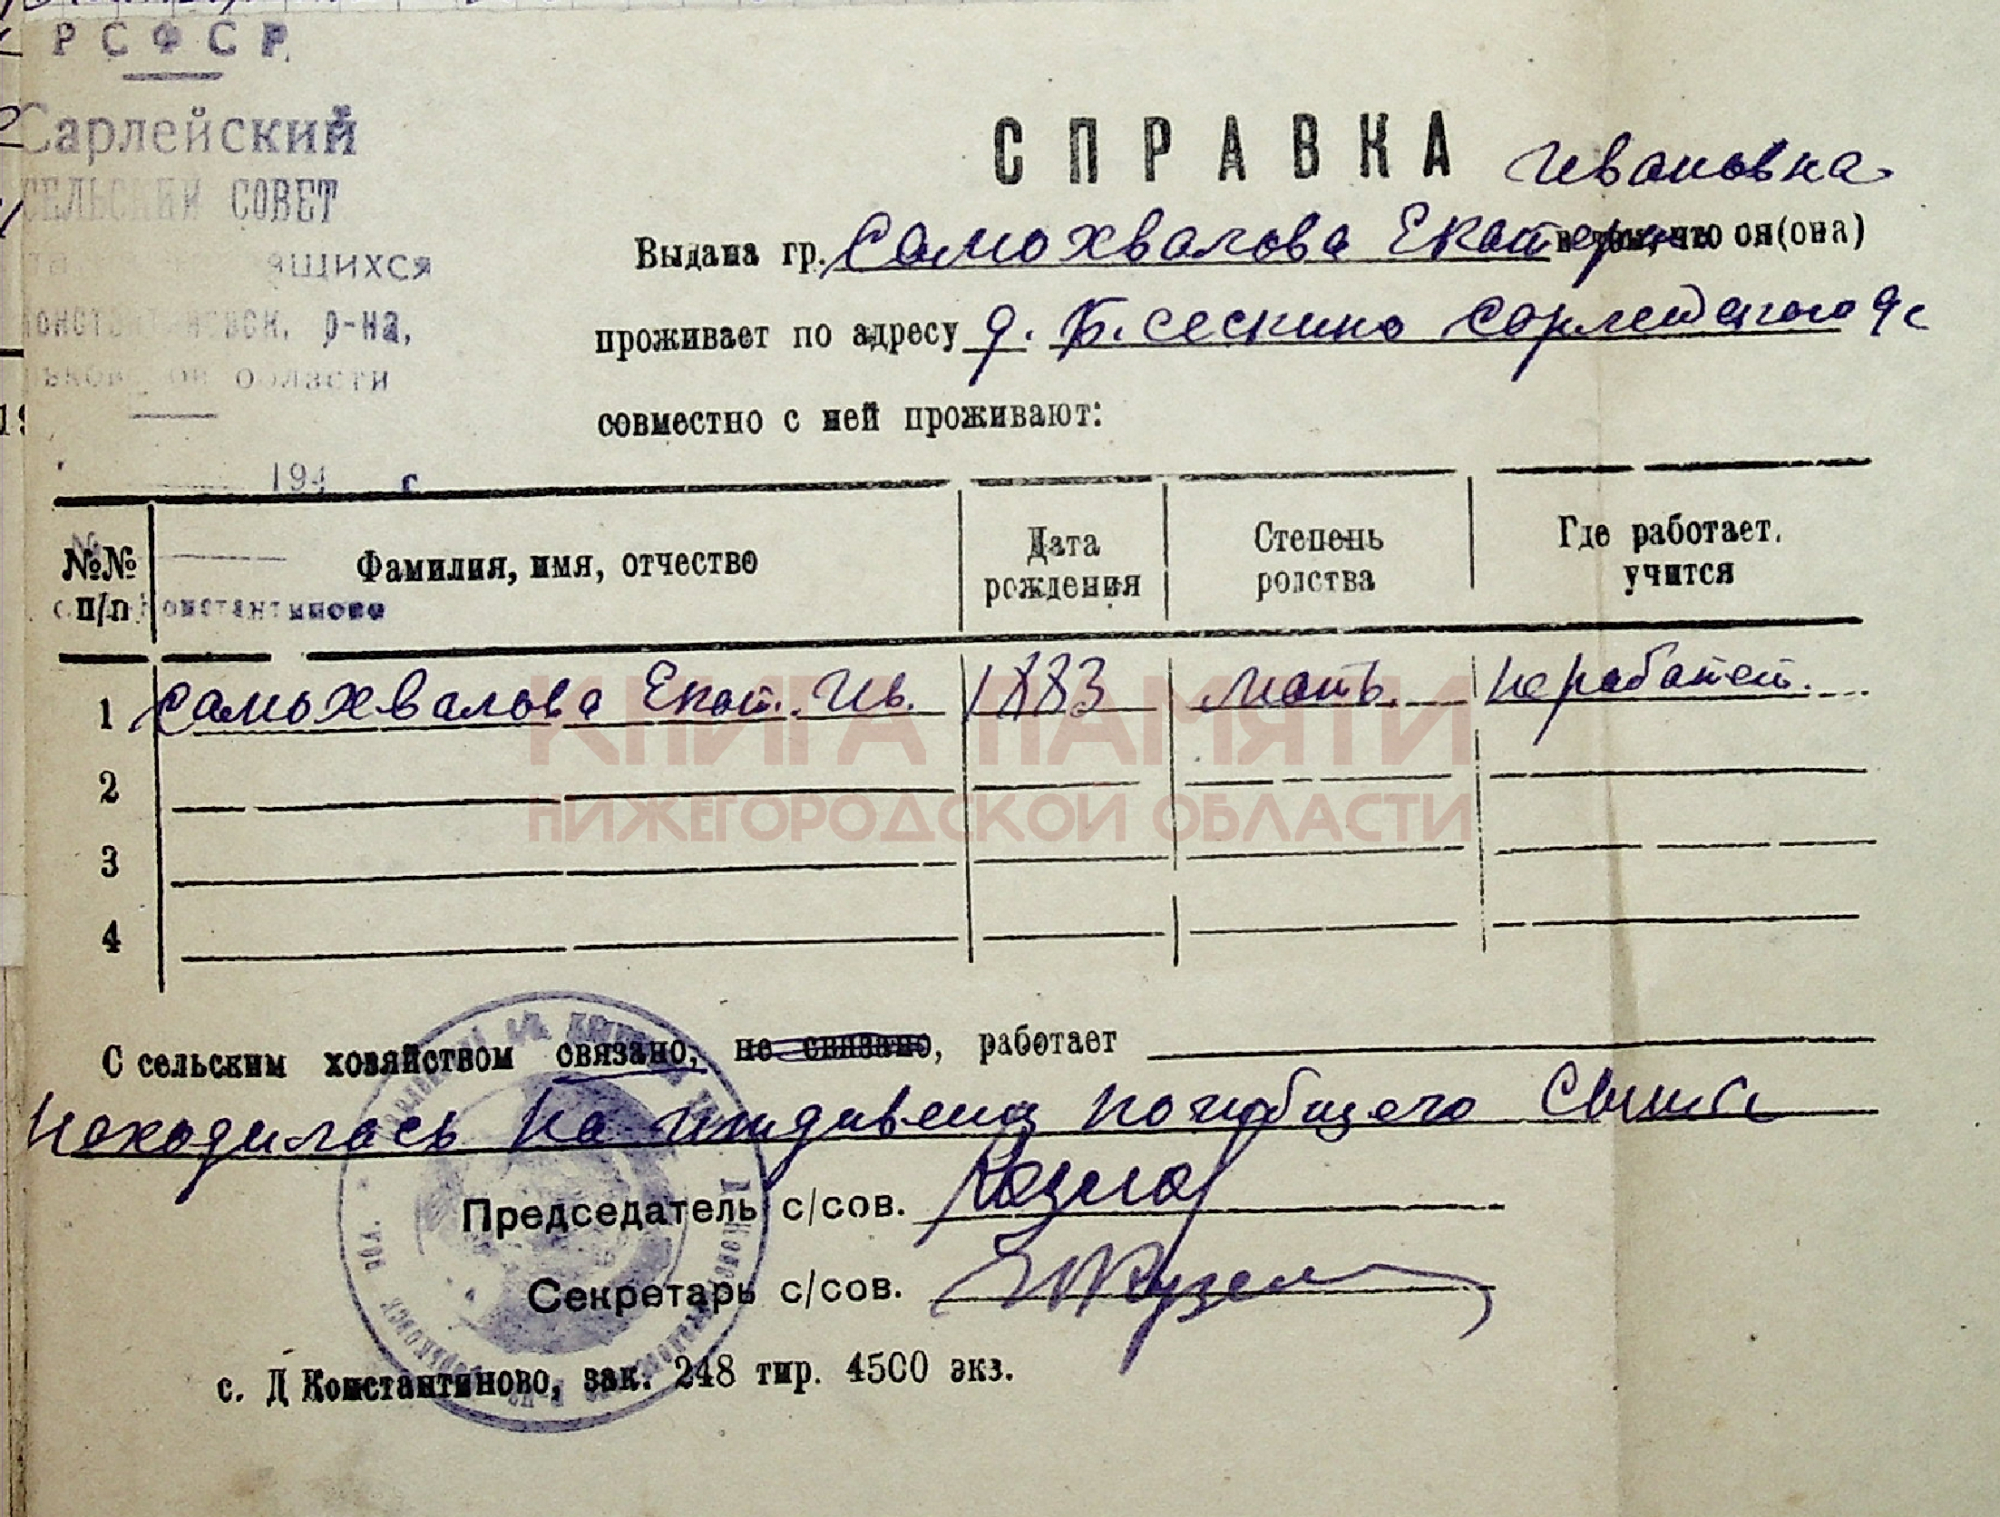 РСФСР
Сарлейский
СЕЛЬСКИЙ СОВЕТ
р-на,
области
194 г
СПРАВКА
Ивановна
Выдана гр. Самохвалова Екатерине в том, что он(она)
проживает по адресу д. Б. Сескино Сарлейского
совместно с ней проживают:
№№ п/п Фамилия, имя, отчество Дата рождения Степень родства Где работает, учится
Константиново
1 Самохвалова Екат. Ив. 1883 мать. не работает.
2
3
4
КНИГА ПАМЯТИ
НИЖЕГОРОДСКОЙ ОБЛАСТИ
С сельским хозяйством связано, не связано, работает
Находилась на погибщего Сына
Председатель с/сов.
Секретарь с/сов.
с. Д Константиново, зак. 248 тир. 4500 экз.